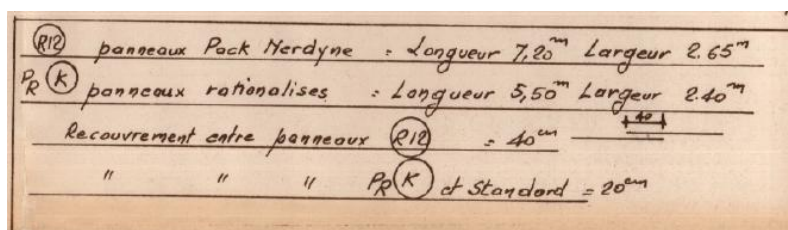 R12 panneaux Pack Nerdyne = Longueur 7,20m Largeur 2.65m
PR K panneaux rationalises = Longueur 5,50m Largeur 2.40m
40
Recouvrement entre panneaux R12 = 40cm
" " " PR K et Standard = 20cm